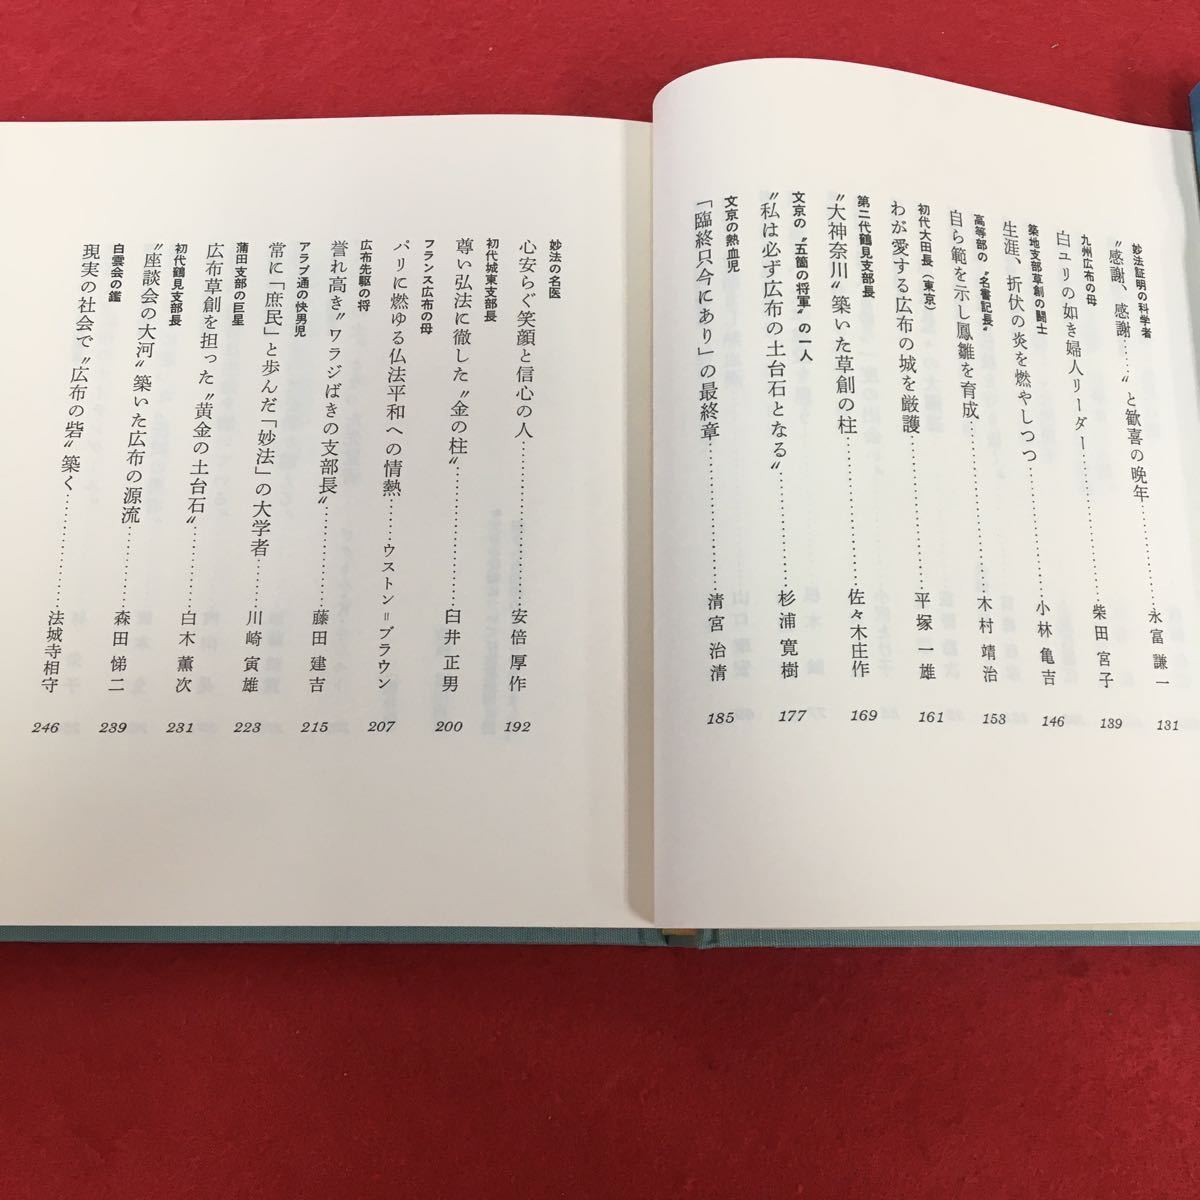 妙法証明の科学者
〝感謝、感謝……〟と歓喜の晩年…………永富謙一 131
九州広布の母
白ユリの如き婦人リーダー…………柴田宮子 139
築地支部草創の闘士
生涯、折伏の炎を燃やしつつ…………小林亀吉 146
高等部の〝名書記長〟
自ら範を示し鳳雛を育成…………木村靖治 153
初代大田長（東京）
わが愛する広布の城を厳護…………平塚一雄 161
第二代鶴見支部長
〝大神奈川〟築いた草創の柱…………佐々木庄作 169
文京の〝五箇の将軍〟の一人
〝私は必ず広布の土台石となる〟…………杉浦寛樹 177
文京の熱血児
「臨終只今にあり」の最終章…………清宮治清 185
妙法の名医
心安らぐ笑顔と信心の人…………安倍厚作 192
初代城東支部長
尊い弘法に徹した〝金の柱〟…………臼井正男 200
フランス広布の母
パリに燃ゆる仏法平和への情熱……ウストン＝ブラウン 207
広布先駆の将
誉れ高き〝ワラジばきの支部長〟…………藤田建吉 215
アラブ通の快男児
常に「庶民」と歩んだ「妙法」の大学者……川崎寅雄 223
蒲田支部の巨星
広布草創を担った〝黄金の土台石〟…………白木薫次 231
初代鶴見支部長
〝座談会の大河〟築いた広布の源流…………森田悌二 239
白雲会の鑑
現実の社会で〝広布の砦〟築く…………法城寺相守 246